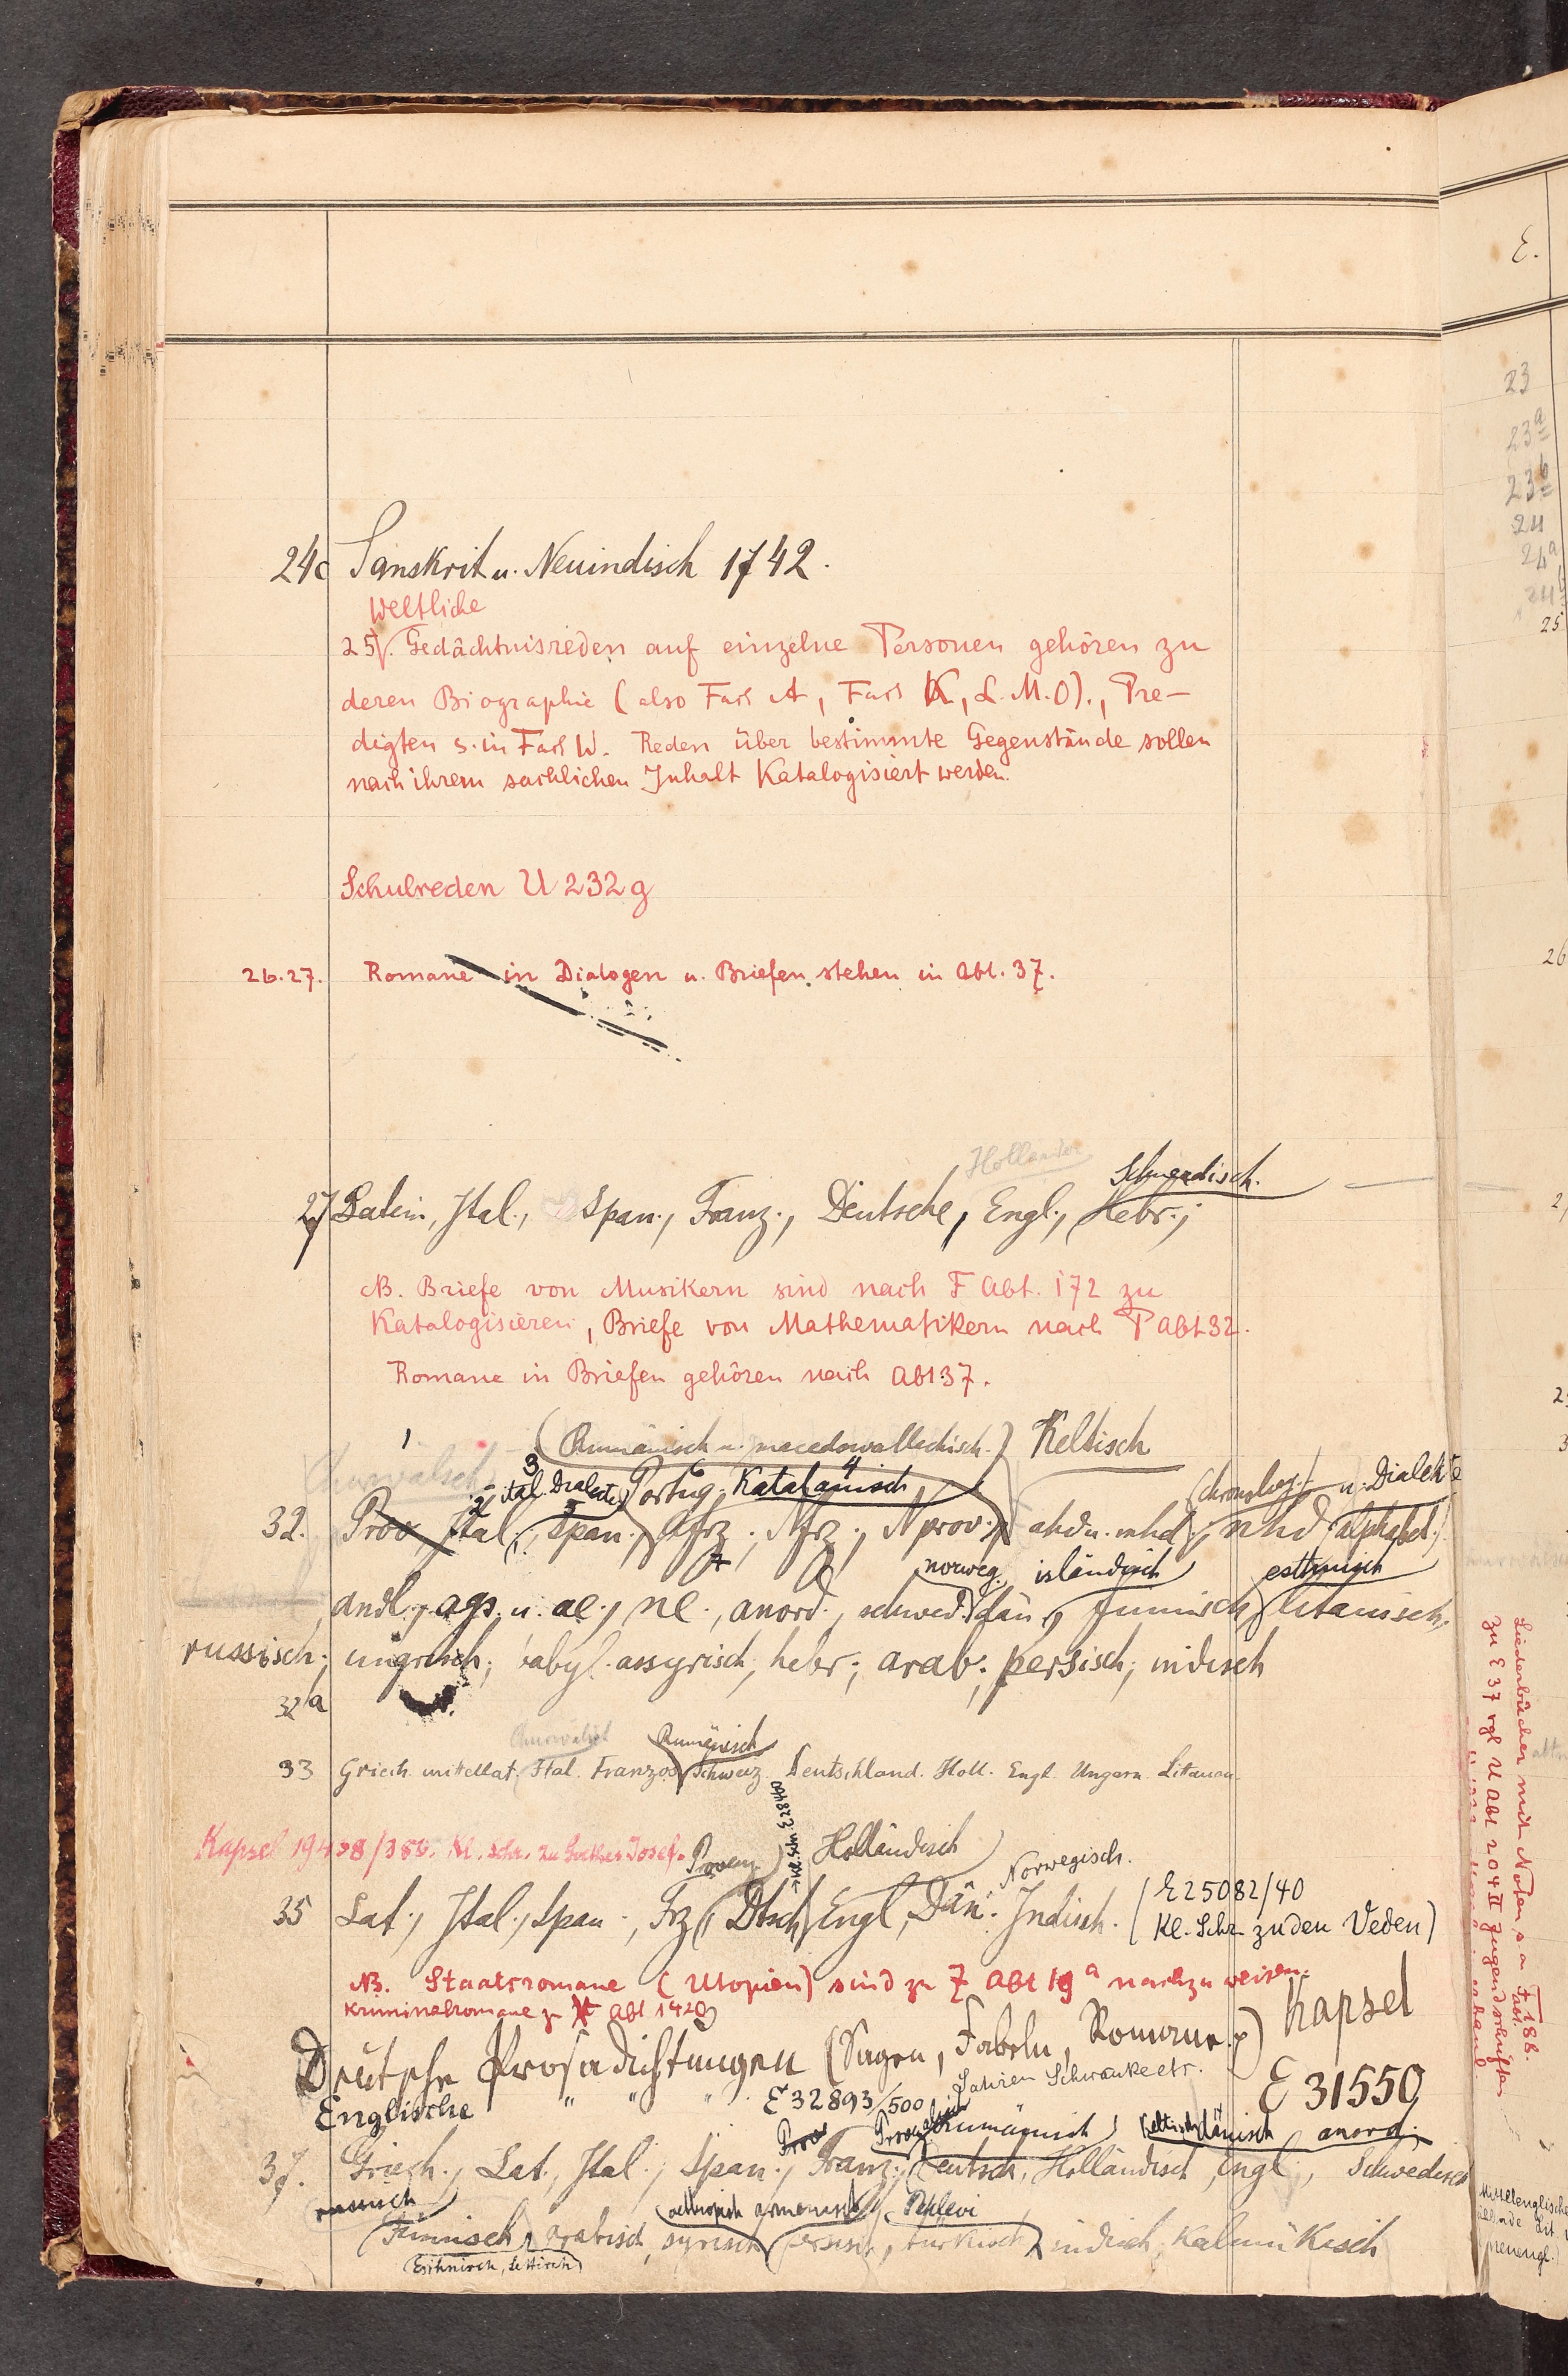 24c Sanskrit u. Neuindisch 1742.
Weltliche
25. Gedächtnisreden auf einzelne Personen gehören zu
deren Biographie (also Fach A, Fach K, L. M. O)., Pre-
digten s. in Fach W. Reden über bestimmte Gegenstände sollen
nach ihrem sachlichen Inhalt Katalogisiert werden.
Schulreden U 232 g
26.27. Romane in Dialogen u. Briefen stehen in Abt. 37.
Holländer
Schwedisch.
27 Latein, Ital., Span., Franz., Deutsche, Engl., Hebr.;
NB. Briefe von Musikern sind nach F Abt. 172 zu
Katalogisieren, Briefe von Mathematikern nach P Abt 32.
Romane in Briefen gehören nach Abt 37.
1 (Rumänisch u. macedowallachisch.) Keltisch
Churwälsch
3 4
2 ital. Dialecte Portug. Katalanisch (chronolog.) u. Dialekte
32. Prov Ital., Span., Afrz., Nfrz., Nprov., ahd u. mhd., nhd alphabet.
norweg. isländisch esthnisch
andl., ags. u. ae., ne., anord., schwed. dän., finnisch, litauisch,
russisch; ungrisch; babyl. assyrisch, hebr.; arab.; persisch; indisch
32a
Churwälsch Rumänisch
33 Griech. mittellat. Ital. Französ. Schweiz. Deutschland. Holl. Engl. Ungarn. Littauen.
Kl. Schr. zu Goethes Josef. Provenz. Holländisch
Norwegisch.
35 Lat., Ital., Span., Frz., Dtsch, Engl, Dän. Indisch. (E 25082/40
Kl. Schr. zu den Veden)
NB. Staatsromane (Utopien) sind zu Z Abt 19a nachzuweisen.
Kriminalromane zu Abt 142
Deutsche Prosadichtungen (Sagen, Fabeln, Romane) Kapsel
Satiren Schwänke etc.
Englische " " " E 32893/500 E 31550
Prov Rumänisch keltisch dänisch anord.
37. Griech., Lat., Ital., Span., Franz., Deutsch, Holländisch, Engl., Schwedisch
russisch aethiopisch armenisch Pehlevi
Finnisch, arabisch, syrisch, persisch, türkisch, indisch, Kalmükisch
(Esthnisch, Lettisch)
E.
23
23a
23b
24
24a
25
26
Liederbücher mit Noten s. a. F Fach 188.
zu E 37 vgl U Abt 204 II Jugendschriften
Mittelenglische
neuengl.)